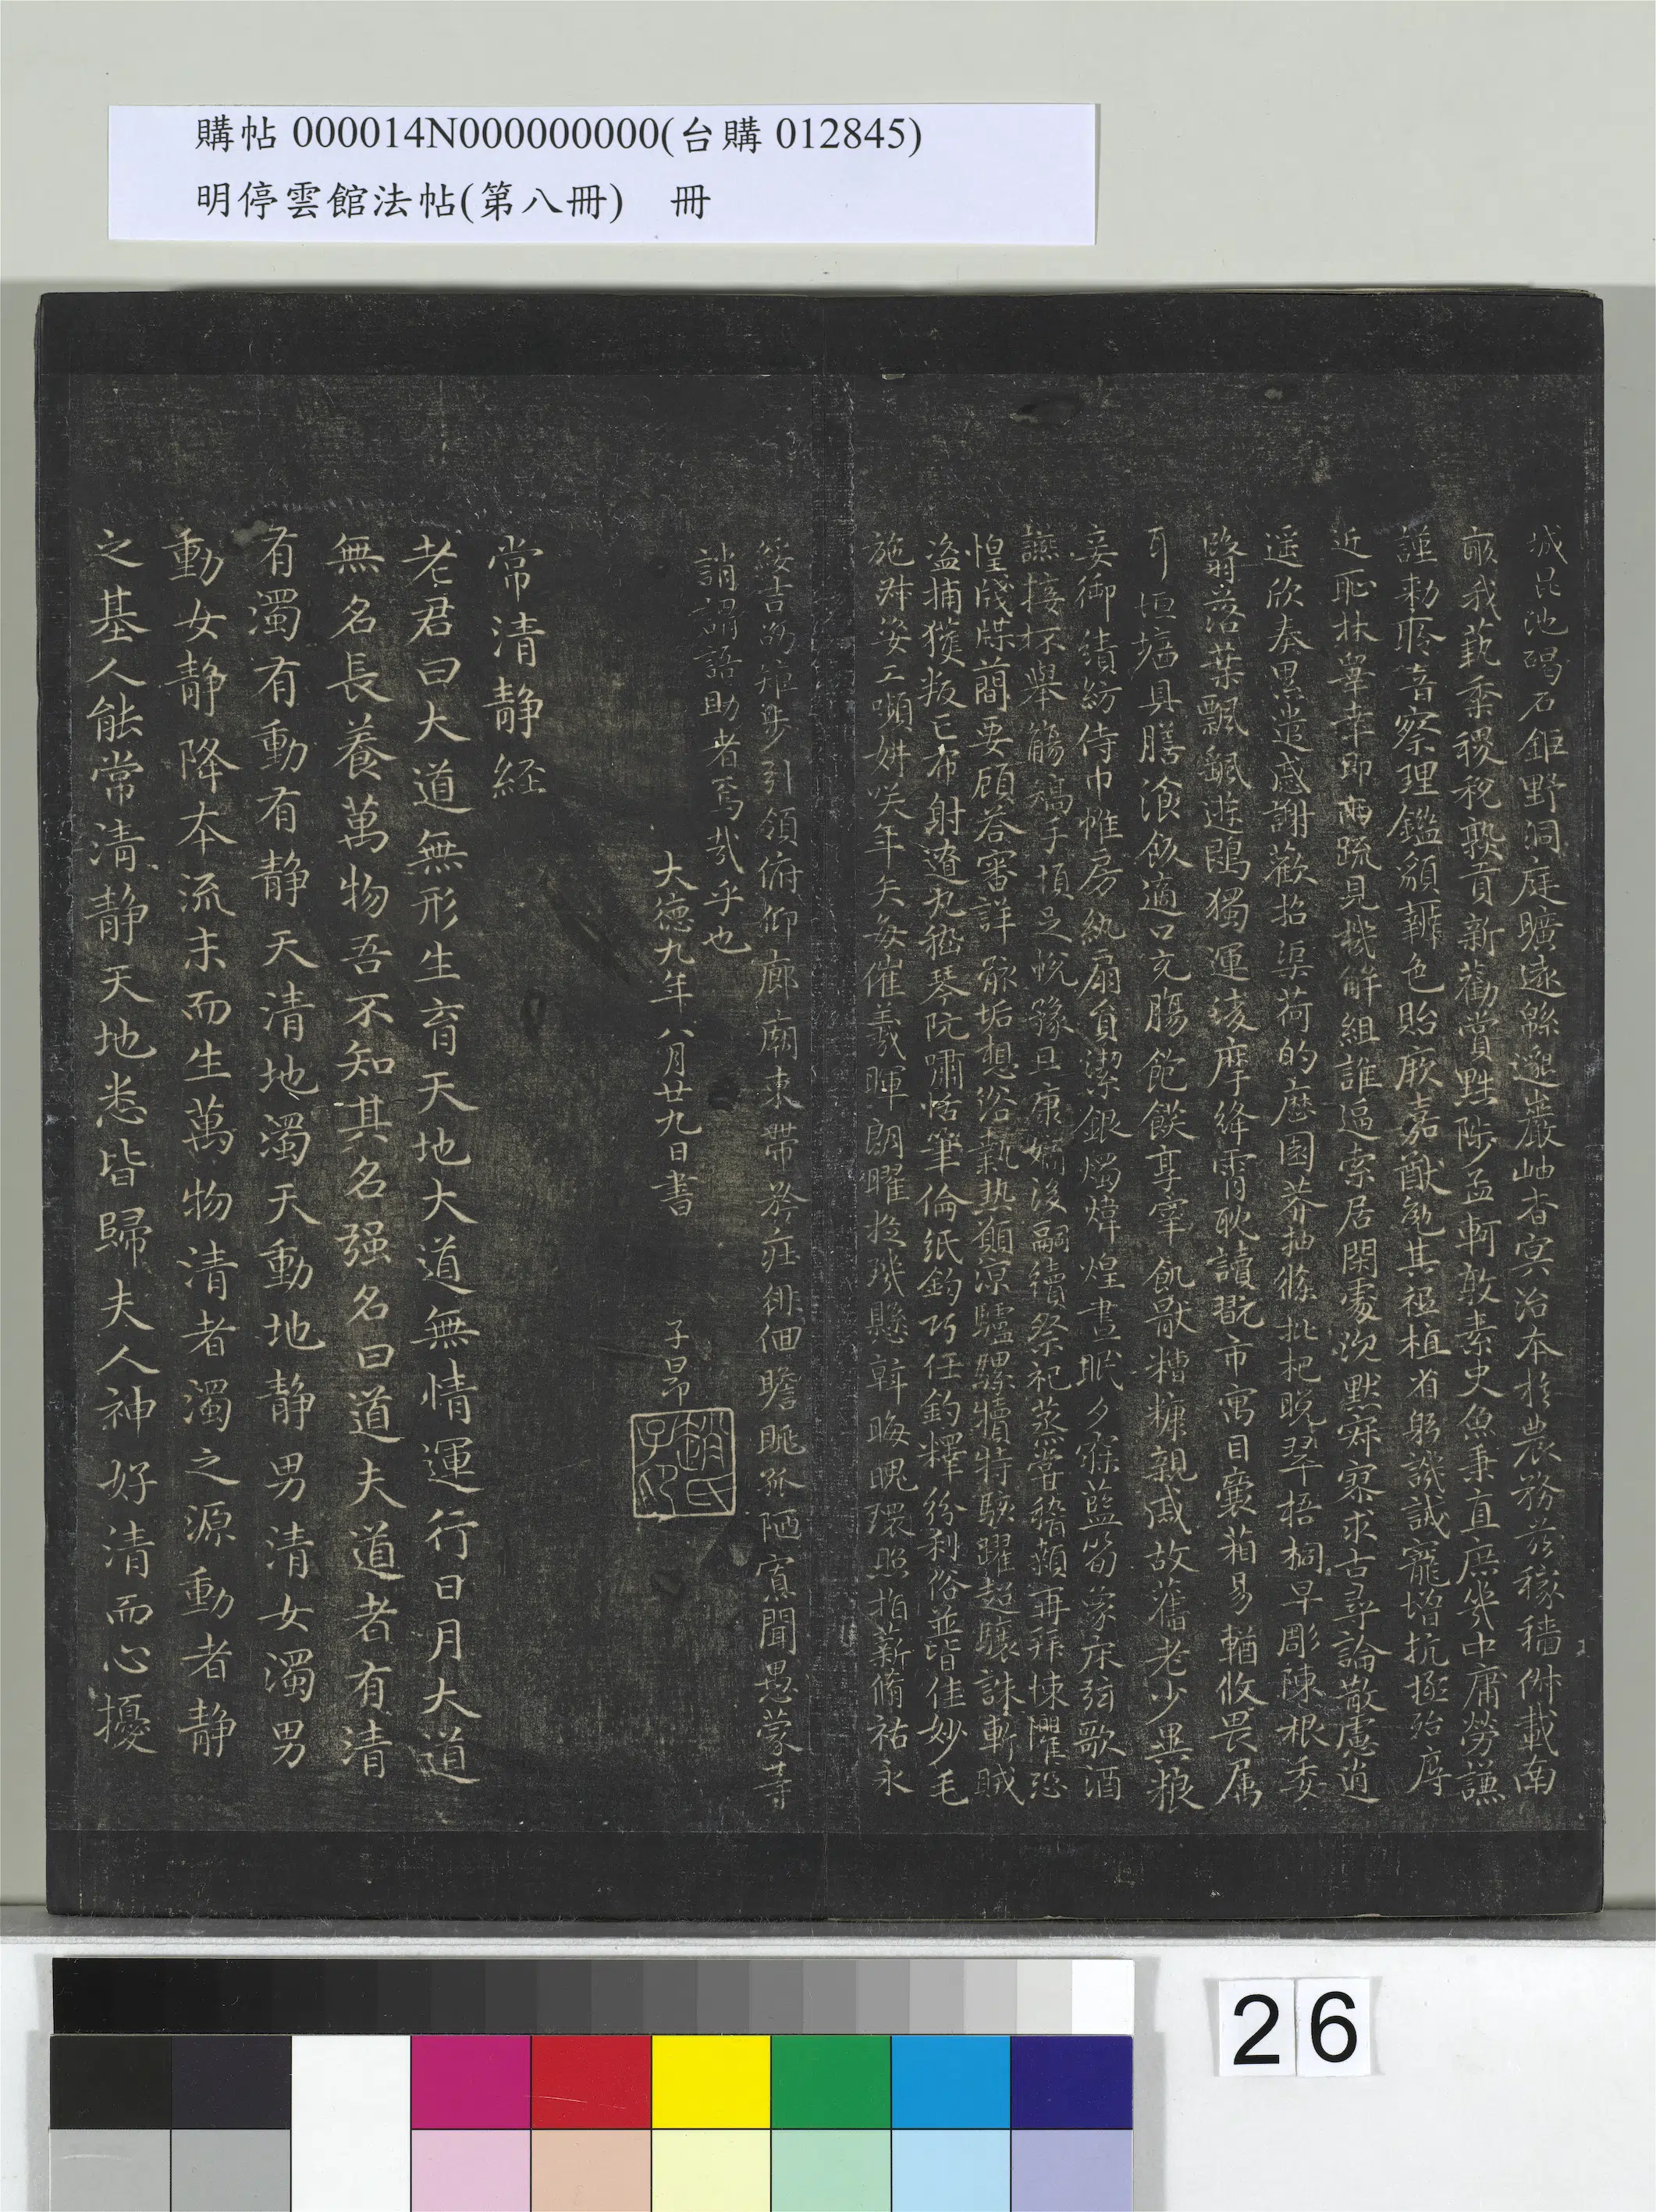 購帖 000014N000000000(台購 012845)
明停雲館法帖(第八冊)　冊
城昆池碣石鉅野洞庭曠遠緜邈巖岫杳冥治本於農務茲稼穡俶載南
畝我蓺黍稷稅熟貢新勸賞黜陟孟軻敦素史魚秉直庶幾中庸勞謙
謹勑聆音察理鑑貌辨色貽厥嘉猷勉其祗植省躬譏誡寵增抗極殆辱
近恥林皋幸即兩疏見機解組誰逼索居閑處沉默寂寥求古尋論散慮逍
遥欣奏累遣慼謝歡招渠荷的歷園莽抽條批杷晚翠梧桐早彫陳根委
翳落葉飄飖遊鵾獨運凌摩絳霄耽讀翫市寓目囊箱易輶攸畏屬
耳垣墻具膳飡飯適口充腸飽飫享宰飢猒糟糠親戚故舊老少異粮
妾御績紡侍巾帷房紈扇員潔銀燭煒煌晝眠夕寐藍筍象床弦歌酒
讌接杯舉觴矯手頓足悅豫且康嫡後嗣續祭祀蒸嘗稽顙再拜悚懼恐
惶牋牒簡要顧荅審詳骸垢想浴執熱願涼驢騾犢特駭躍超驤誅斬賊
盜捕獲叛亡布射遼丸嵇琴阮嘯恬筆倫紙鈞巧任釣釋紛利俗並皆佳妙毛
施淑姿工嚬妍咲年矢每催羲暉朗曜琁璣懸斡晦魄環照指薪脩祐永
綏吉劭矩步引領俯仰廊廟束帶矜莊徘徊瞻眺孤陋寡聞愚蒙等
誚謂語助者焉哉乎也
大德九年八月廿九日書　子昂
趙氏子昂
常清靜經
老君曰大道無形生育天地大道無情運行日月大道
無名長養萬物吾不知其名强名曰道夫道者有清
有濁有動有靜天清地濁天動地靜男清女濁男
動女靜降本流末而生萬物清者濁之源動者靜
之基人能常清靜天地悉皆歸夫人神好清而心擾
26